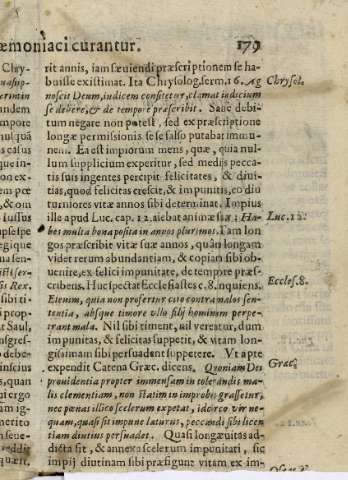 æmoniaci curantur. 179
rit annis, iam sæuiendi præscriptionem se ha-
buisse existimat. Ita Chrysolog. serm. 16. Ag
noscit Deum, iudicem confitetur, clamat iudicium
se debere, & de tempore præscribit. Sane debi-
tum negare non potest, sed ex præscriptione
longæ permissionis se se falso putabat immu-
nem. Ea est impiorum mens, quæ, quia nul-
lum supplicium experitur, sed medijs pecca-
tis suis ingentes percipit felicitates, & diui-
tias, quod felicitas crescit, & impunitis, eo diu
turniores vitæ annos sibi determinat. Impius
ille apud Luc. cap. 12. aiebat animæ suæ: Ha-
bes multa bona posita in annos plurimos. Tam lon
gos præscribit vitæ suæ annos, quàm longam
videt rerum abundantiam, & copiam sibi ob-
uenire, ex felici impunitate, de tempore præs-
cribens. Huc spectat Ecclesiastes c. 8. inquiens.
Etenim, quia non profertur cito contra malos sen-
tentia, absque timore vllo filij hominum perpe-
trant mala. Nil sibi timent, nil verentur, dum
impunitas, & felicitas suppetit, & vitam lon-
gissimam sibi persuadent suppetere. Vt apte
expendit Catena Græc. dicens. Quoniam Dei
prouidentia propter immensam in tolerandis ma-
lis clementiam, non statim in improbos grassetur,
nec pœnas illico scelerum expetat, idcirco vir ne-
quam, quasi sit impune laturus, peccandi sibi licen
tiam diutius persuadet. Quasi longæuitas ad-
dicta sit, & annexa scelerum impunitati, sic
impij diutinam sibi præfigunt vitam ex im-
Chrysol.
Luc. 12.
Eccles. 8.
Græc.
Chry-
crimin
andem
casus
que in-
n ex-
per
, & om
iussus
upsesse
igique
ens
Rex.
sibi ti-
propi
at Saul,
ongres-
debe-
insicias
, quan
ergo
am
merito
n seue-
reddit